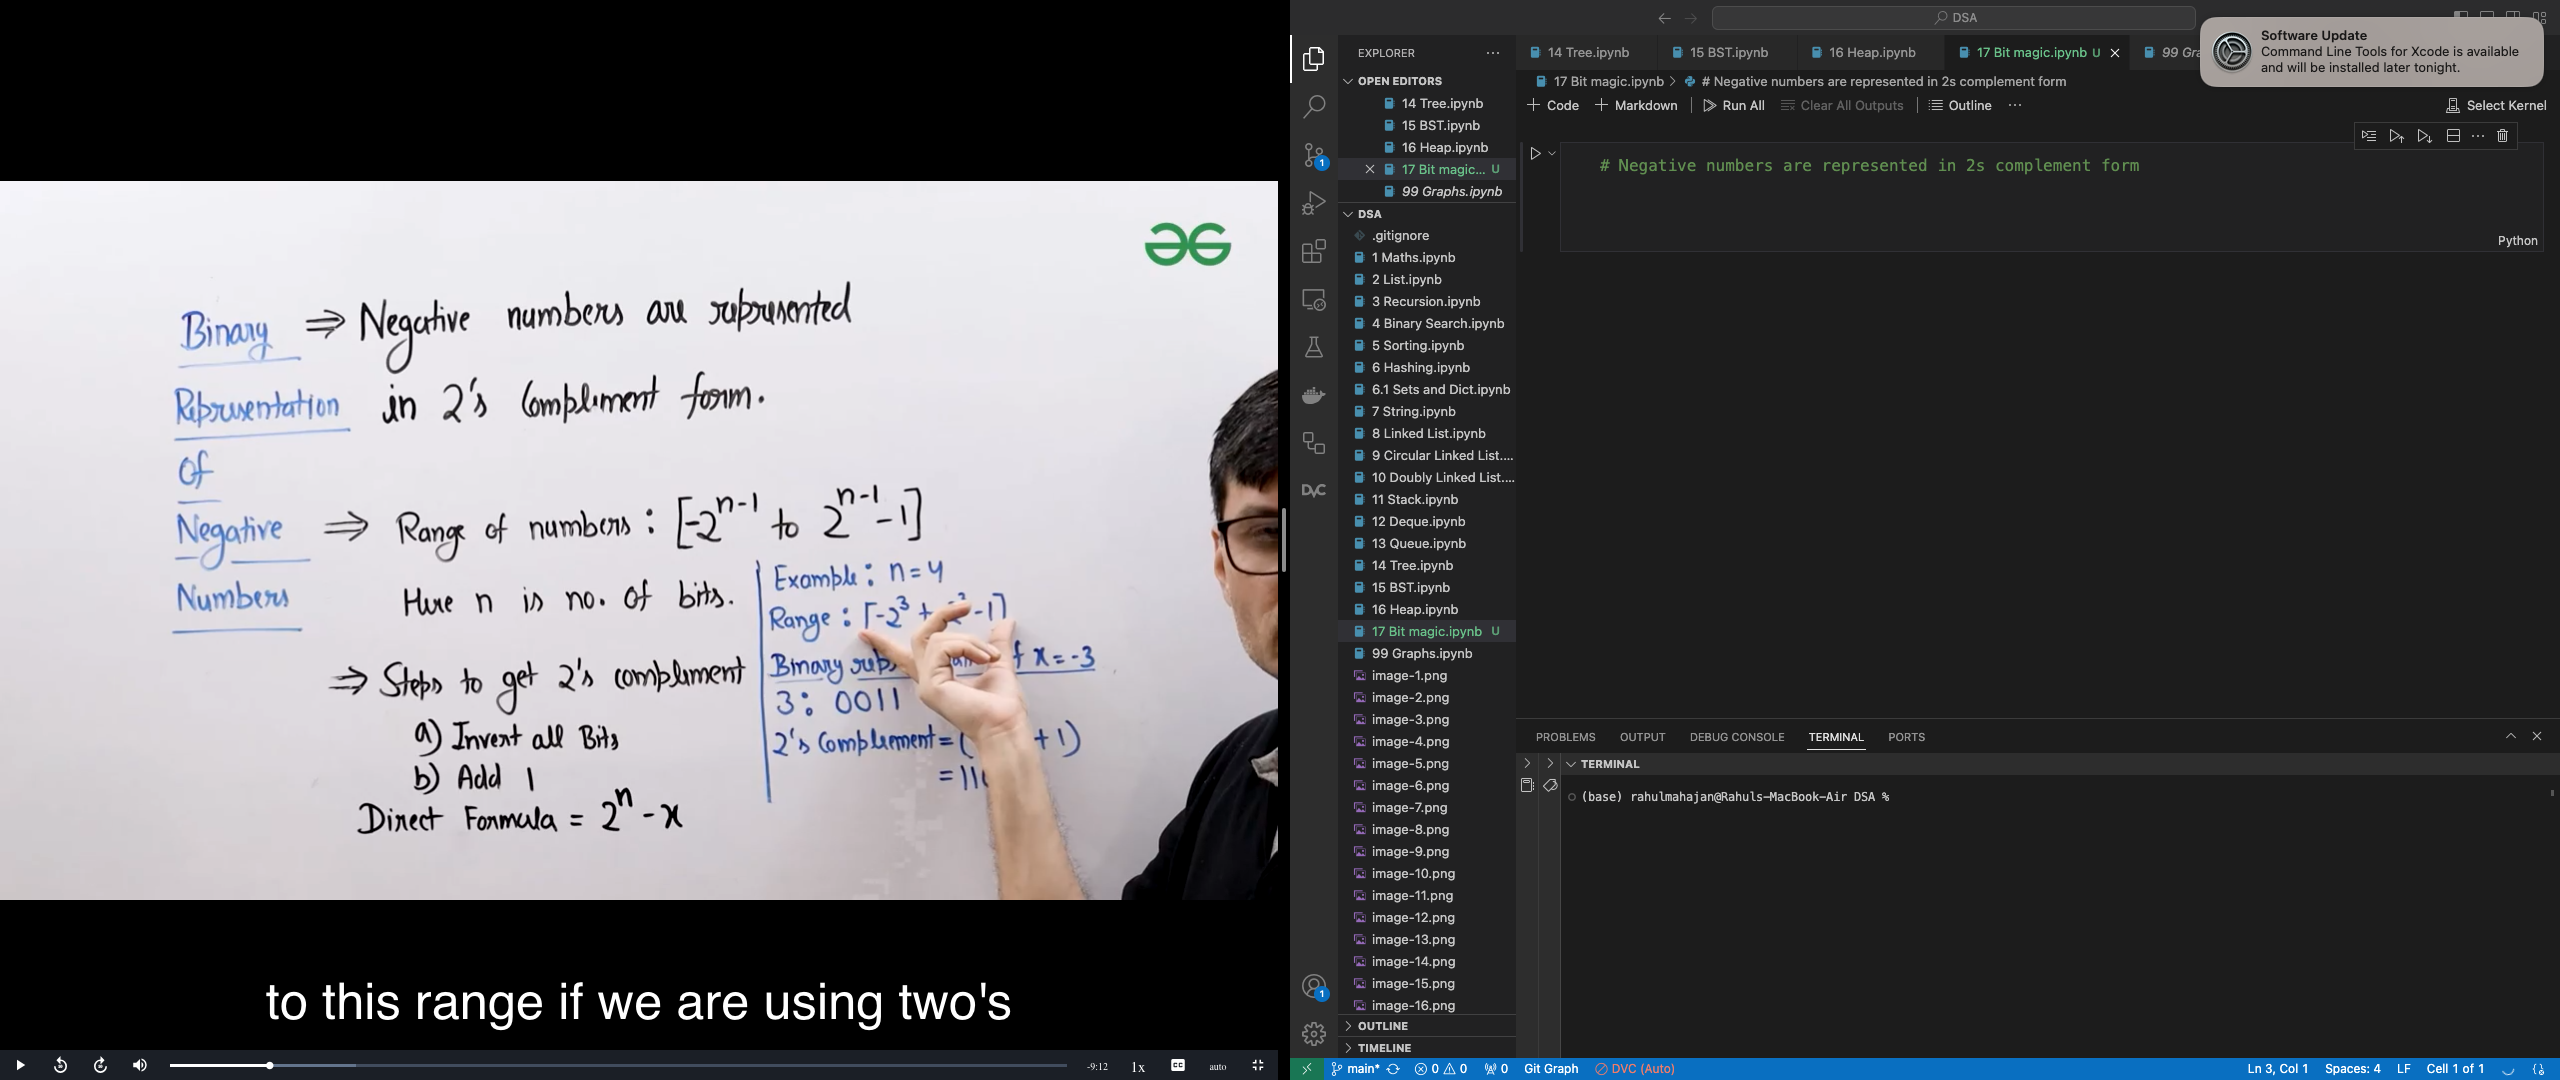 Binary ⇒ Negative numbers are represented
Representation in 2's Compliment form.
Of
Negative ⇒ Range of numbers : [-2^n-1 to 2^n-1 -1]
Numbers Here n is no. of bits.
Example : n=4
Range : [-2^3 + -1]
⇒ Steps to get 2's compliment
a) Invert all Bits
b) Add 1
Direct Formula = 2^n - x
Binary x = -3
3 : 0011
2's Complement = ( +1)
= 11
to this range if we are using two's
-9:12
1x
CC
auto
DSA
Software Update
Command Line Tools for Xcode is available
and will be installed later tonight.
EXPLORER
OPEN EDITORS
14 Tree.ipynb
15 BST.ipynb
16 Heap.ipynb
17 Bit magic... U
99 Graphs.ipynb
DSA
.gitignore
1 Maths.ipynb
2 List.ipynb
3 Recursion.ipynb
4 Binary Search.ipynb
5 Sorting.ipynb
6 Hashing.ipynb
6.1 Sets and Dict.ipynb
7 String.ipynb
8 Linked List.ipynb
9 Circular Linked List....
10 Doubly Linked List....
11 Stack.ipynb
12 Deque.ipynb
13 Queue.ipynb
14 Tree.ipynb
15 BST.ipynb
16 Heap.ipynb
17 Bit magic.ipynb U
99 Graphs.ipynb
image-1.png
image-2.png
image-3.png
image-4.png
image-5.png
image-6.png
image-7.png
image-8.png
image-9.png
image-10.png
image-11.png
image-12.png
image-13.png
image-14.png
image-15.png
image-16.png
OUTLINE
TIMELINE
DVC
1
1
14 Tree.ipynb 15 BST.ipynb 16 Heap.ipynb 17 Bit magic.ipynb U 99 Gra
17 Bit magic.ipynb > # Negative numbers are represented in 2s complement form
+ Code + Markdown Run All Clear All Outputs Outline ... Select Kernel
# Negative numbers are represented in 2s complement form
Python
PROBLEMS OUTPUT DEBUG CONSOLE TERMINAL PORTS
TERMINAL
(base) rahulmahajan@Rahuls-MacBook-Air DSA %
main* 0 0 0 Git Graph DVC (Auto) Ln 3, Col 1 Spaces: 4 LF Cell 1 of 1